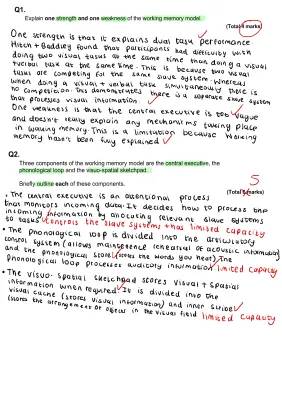 Q1.
Explain one strength and one weakness of the working memory model.
(Total 4 marks)
One strength is that it explains dual task performance.
Hitch + Baddley found that participants had difficulty with
doing two visual tasks at the same time than doing a visual
+ verbal task at the same time. This is because two visual
tasks are competing for the same slave system. Whereas
when doing a visual + verbal task simultaneously there is
no competition. This demonstrates there is a separate slave system
that processes visual information
One weakness is that the central executive is too vague
and doesn't really explain any mechanisms taking place
in working memory. This is a limitation because working
memory hasn't been fully explained
Q2.
Three components of the working memory model are the central executive, the
phonological loop and the visuo-spatial sketchpad.
Briefly outline each of these components.
5
(Total marks)
• The central executive is an attentional process
that monitors incoming data. It decides how to process the
incoming information by allocating relevant slave systems
to tasks controls the slave systems + has limited capacity
• The phonological loop is divided into the articulatory
control system (allows maintenance rehearsal of acoustic information)
and the phonological store (stores the words you hear). The
phonological loop processes auditory information limited capacity
• The visuo-spatial sketchpad stores visual + spatial
information when required. It is divided into the
visual cache (stores visual information) and inner scribe
(stores the arrangement of objects in the visual field limited capacity